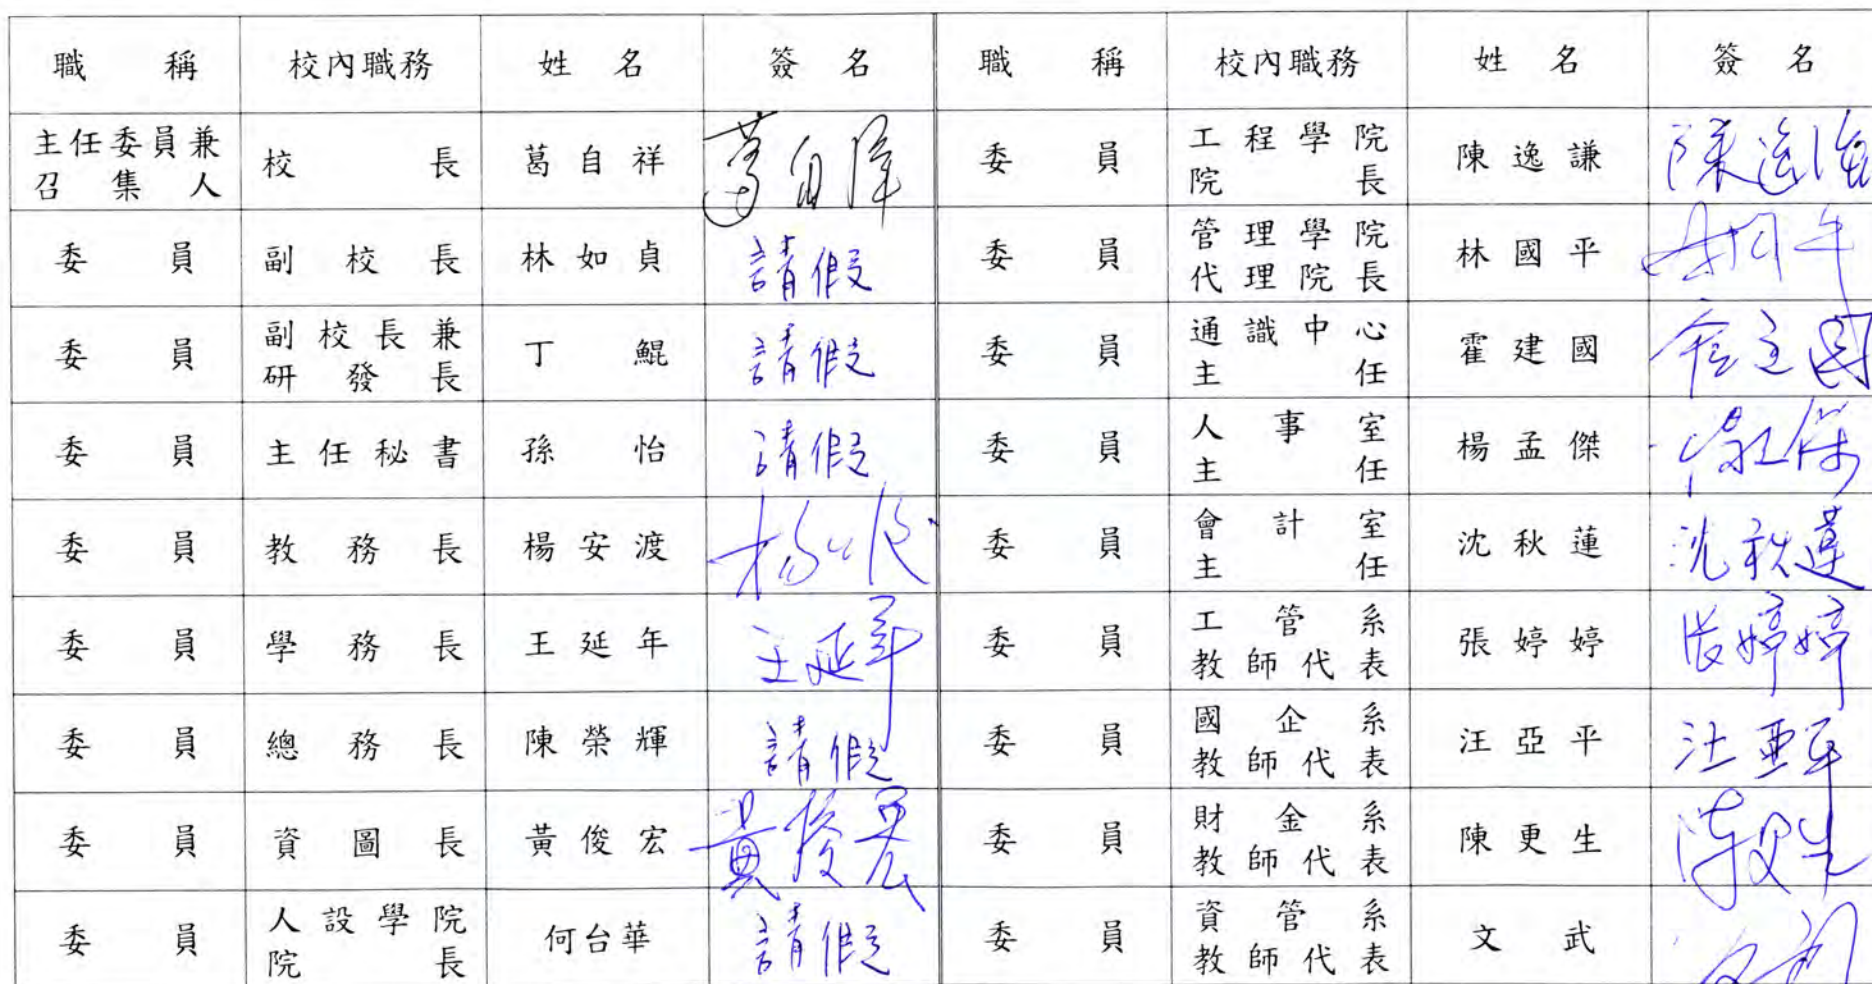 職稱 校內職務 姓名 簽名 職稱 校內職務 姓名 簽名
主任委員兼召集人 校長 葛自祥 葛自祥 委員 工程學院院長 陳逸謙
委員 副校長 林如貞 請假 委員 管理學院代理院長 林國平
委員 副校長兼研發長 丁鯤 請假 委員 通識中心主任 霍建國
委員 主任秘書 孫怡 請假 委員 人事室主任 楊孟傑
委員 教務長 楊安渡 委員 會計室主任 沈秋蓮 沈秋蓮
委員 學務長 王延年 王延年 委員 工管系教師代表 張婷婷 張婷婷
委員 總務長 陳榮輝 請假 委員 國企系教師代表 汪亞平 汪亞平
委員 資圖長 黃俊宏 黃俊宏 委員 財金系教師代表 陳更生 陳更生
委員 人設學院院長 何台華 請假 委員 資管系教師代表 文武